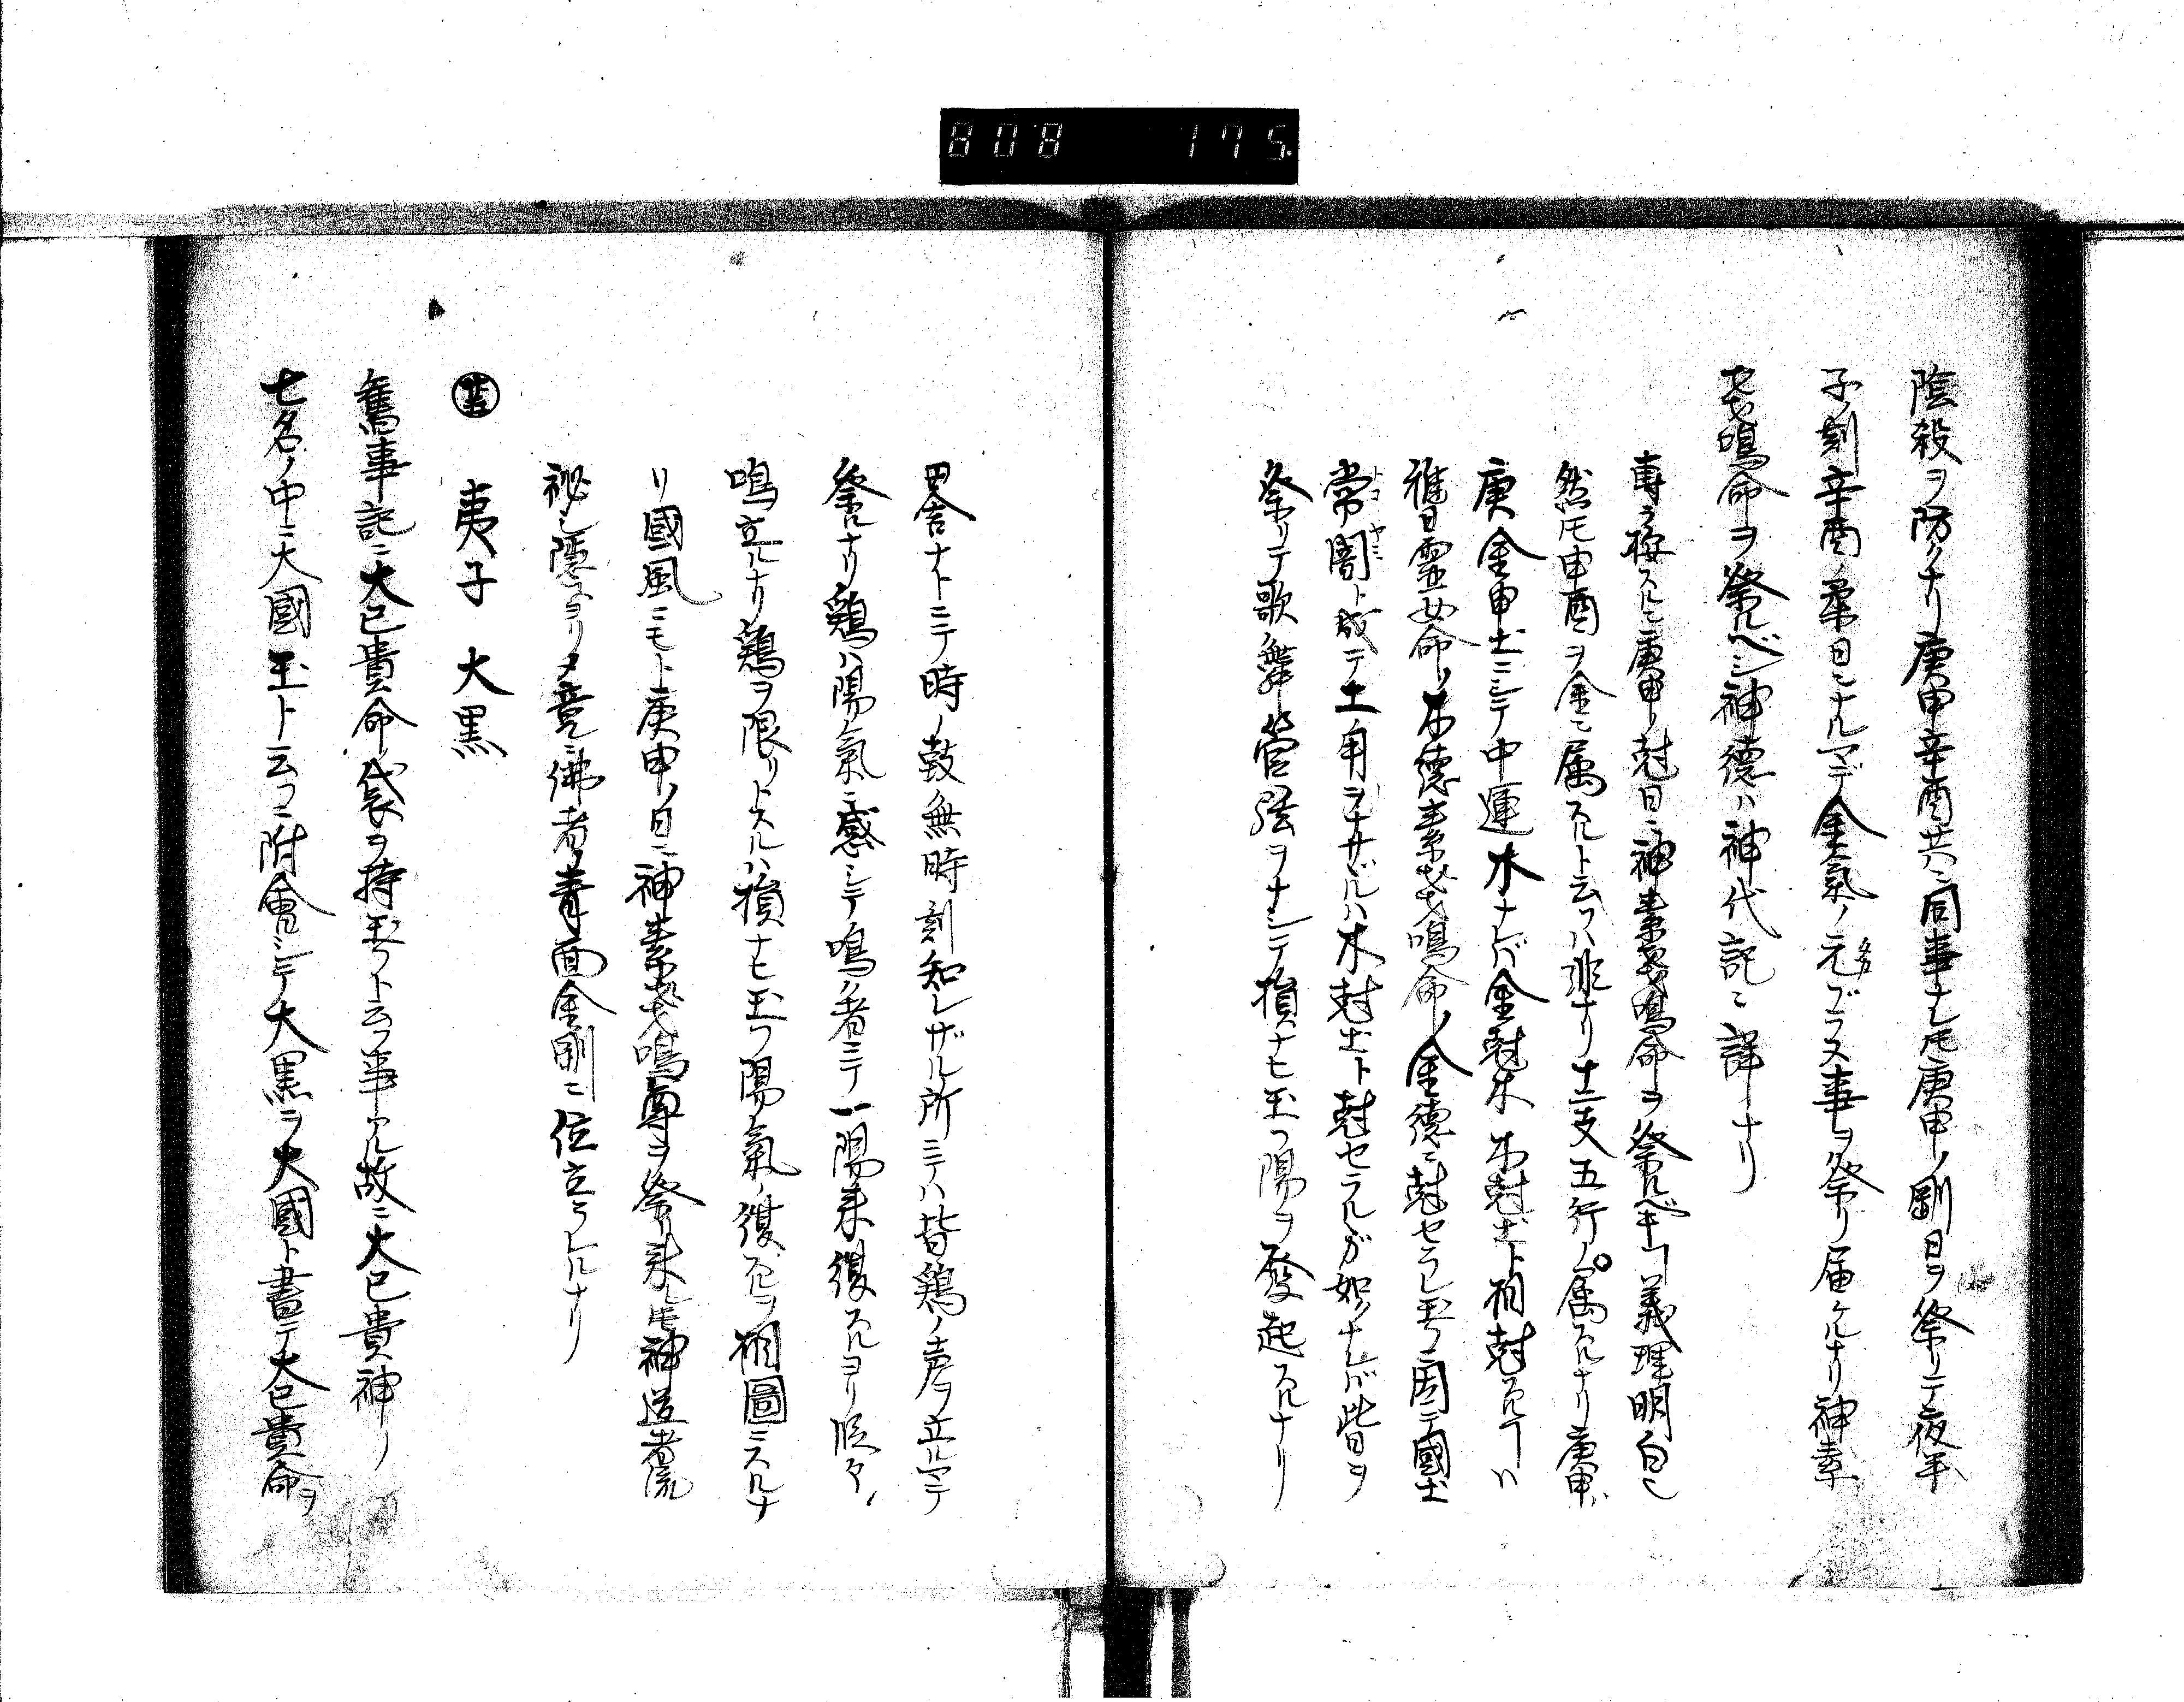 808 175.
陰殺ヲ防クナリ庚申辛酉共ニ同事ナレ𪜈庚申ノ剛日ヲ祭リテ夜半
子ノ刻辛酉ノ柔日ニナルマデ金氣ノ元ブラヌ事ヲ祭リ届ケルナリ神素
戔嗚命ヲ祭ルベシ神德ハ神代記ニ詳ナリ
専ラ按スルニ庚申ノ尅日ニ神素戔嗚命ヲ祭ルベキヿ義理明白ニ
然𪜈申酉ヲ金ニ属スルト云フハ非ナリ十二支五行ノ属スルナリ庚申ハ
庚金申土ニシテ中運木ナレバ金尅木木尅土ト相尅スルヿハ
稚日霊女命ノ木德素戔嗚命ノ金德ニ尅セラレ玉フニ因テ國土
常闇ト成テ土用ヲナサザルハ木尅土ト尅セラルガ如クナレバ此日ヲ
祭リテ歌舞管弦ヲナシテ損ナヒ玉フ陽ヲ發起スルナリ
田舎ナトニテ時ノ鼓無時刻知レザル所ニテハ皆鶏ノ声ヲ立ルマテ
祭ルナリ鶏ハ陽氣ニ感シテ鳴ク者ニテ一陽来復スルヨリ段々
鳴立ルナリ鶏ヲ限リトスルハ損ナヒ玉フ陽氣ノ復スルヲ相圖ニスルナ
リ國風ニモト庚申ノ日ニ神素戔嗚尊ヲ祭リ来レ𪜈神道者流
祕シ隱スヨリメ竟ニ佛者ノ青面金剛ニ位立ラレルナリ
夷子 大黒
舊事記ニ大已貴命袋ヲ持玉フト云フ事アル故ニ大已貴神ノ
七名ノ中ニ大國玉ト云フニ附會シテ大黒ヲ大國ト書テ大已貴命ヲ